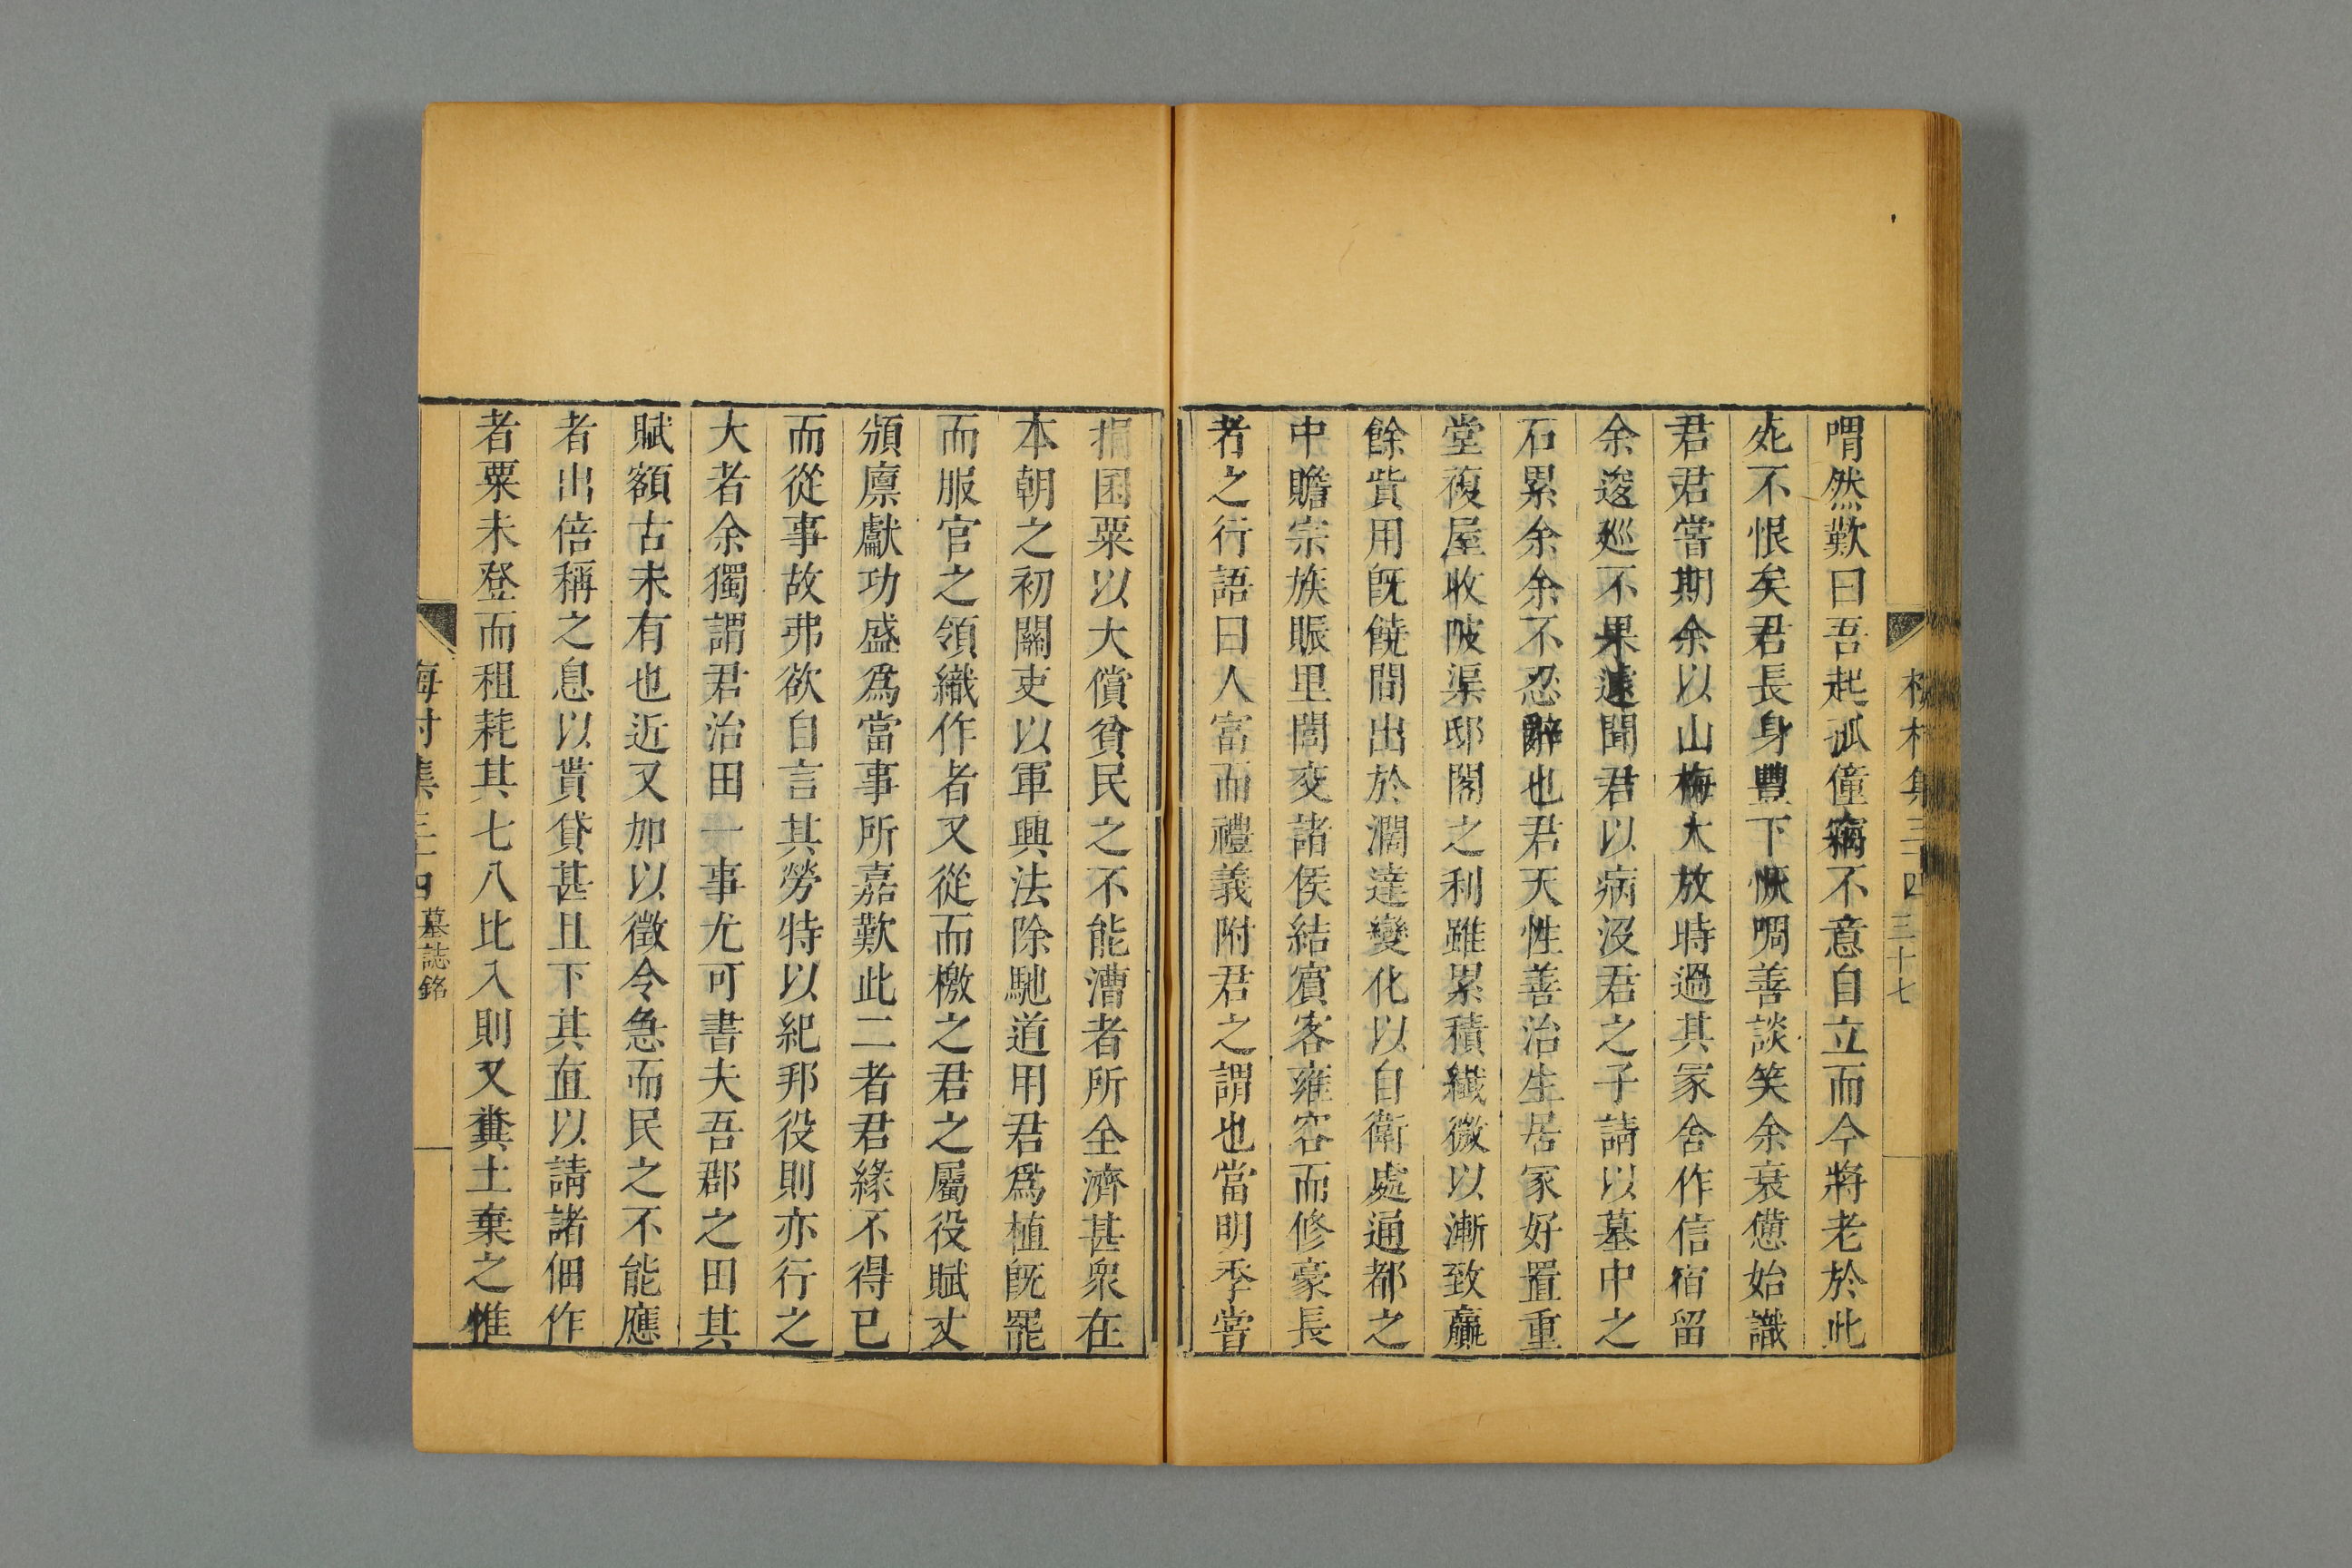 喟然歎曰吾起孤僮竊不意自立而今將老於此
处不恨矣君長身豐下恢啁善談笑余衰憊始識
君君嘗期余以山梅大放時過其冢舍作信宿留
余逡巡不果遠聞君以病沒君之子請以墓中之
石累余余不忍辭也君天性善治生居家好置重
堂複屋收陂渠邸閣之利雖累積纎微以漸致贏
餘貲用既饒間出於濶達變化以自衛處通都之
中贍宗族賑里閭交諸侯結賓客雍容而修豪長
者之行語曰人富而禮義附君之謂也當明季嘗
捐囷粟以大償貧民之不能漕者所全濟甚衆在
本朝之初關吏以軍興法除馳道用君爲植既罷
而服官之領織作者又從而檄之君之屬役賦丈
頒廪獻功盛爲當事所嘉歎此二者君緣不得已
而從事故弗欲自言其勞特以紀邦役則亦行之
大者余獨謂君治田一事尤可書夫吾郡之田其
賦額古未有也近又加以徵令急而民之不能應
者出倍稱之息以貰貸甚且下其直以請諸佃作
者粟未登而租耗其七八比入則又糞土棄之惟
梅村集三十四 墓誌銘
梅村集三十四 三十七